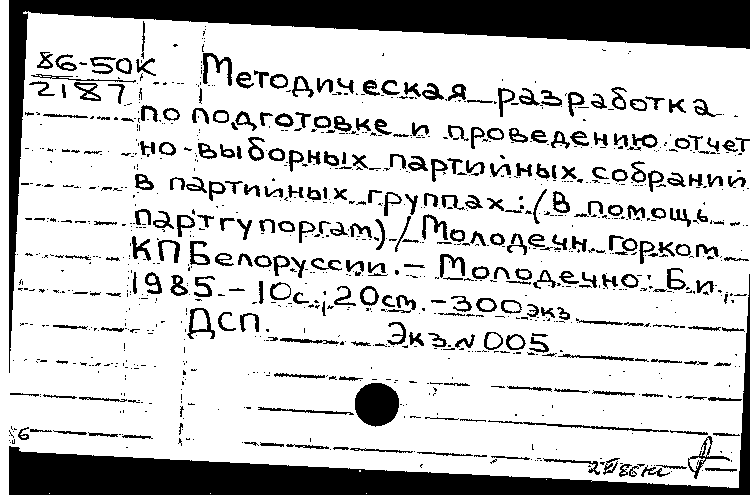 86-50К Методическая разработка
2187 по подготовке и проведению отчет
но-выборных партийных собраний
в партийных группах: (В помощь
партгупоргам) / Молодечн. горком
КП Белоруссии. – Молодечно: Б.и.,
1985. – 10с.; 20см. – 300экз.
ДСП. Экз. N 005